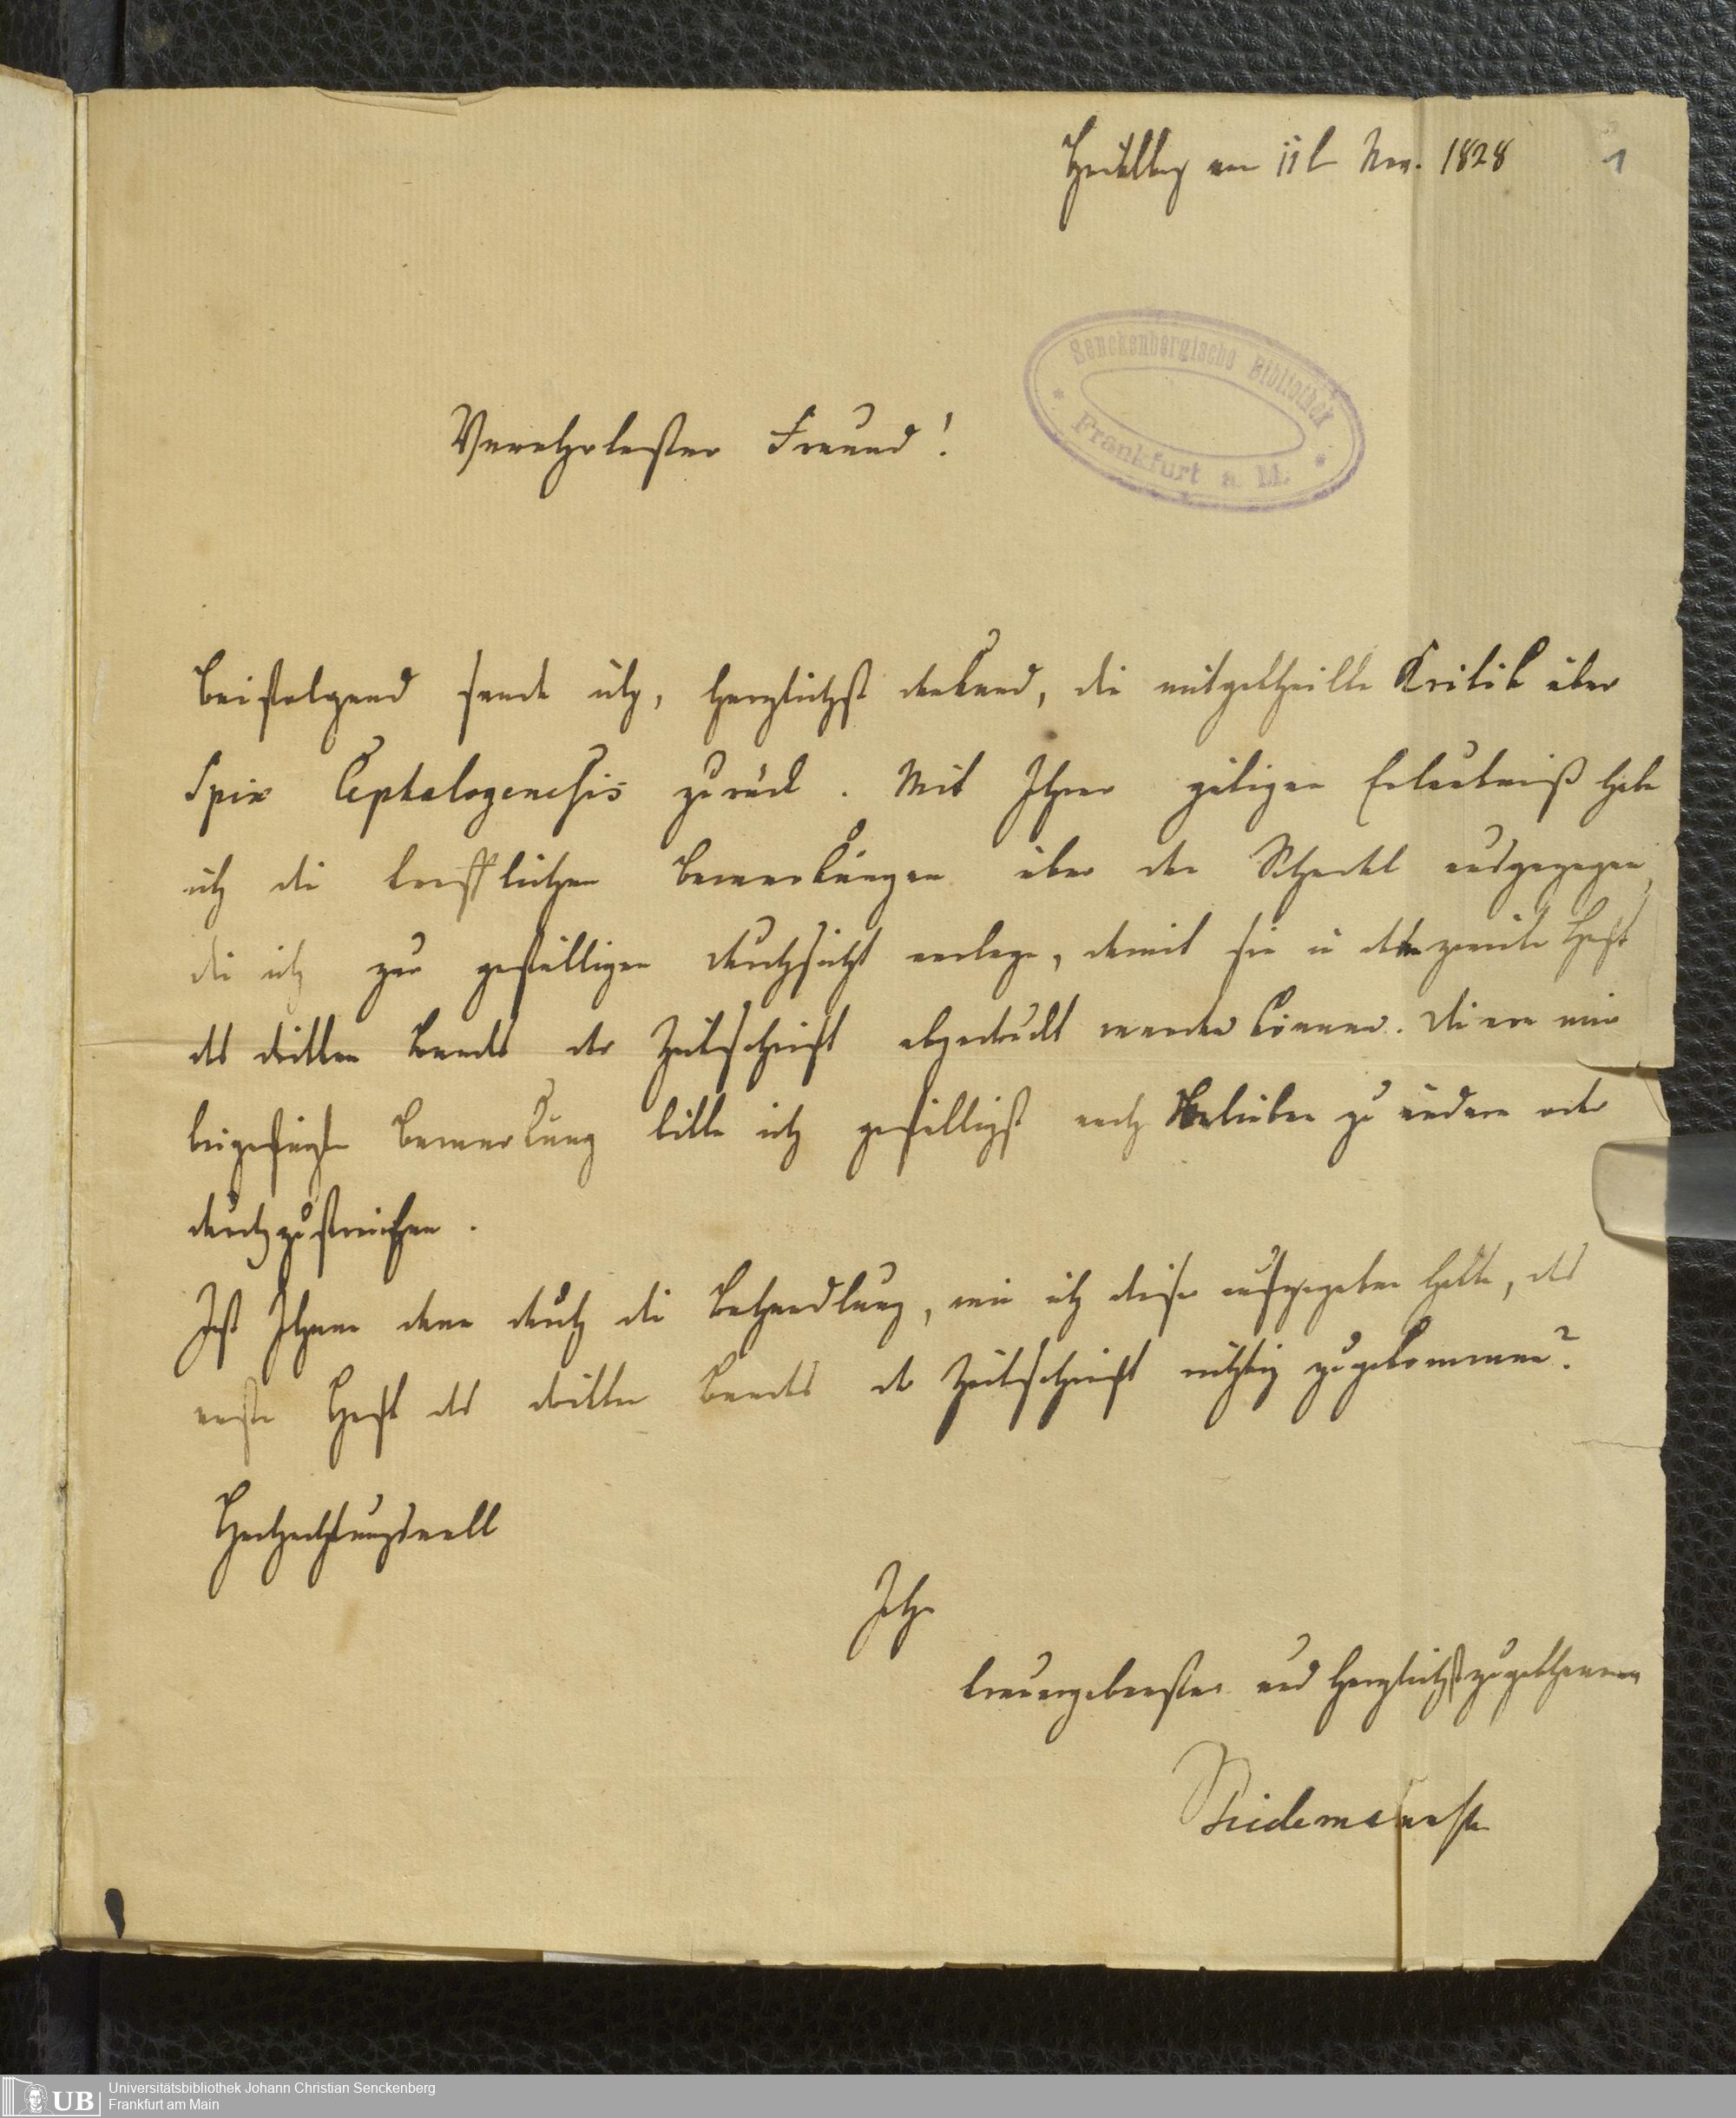 Heidelberg am 11t Nov. 1828
1
Senckenbergische Bibliothek
Frankfurt a. M.
Verehrtester Freund!
Beifolgend sende ich, herzlichst dankend, die mitgetheilte Kritik über
Spix Cephalogenesis zurück. Mit Ihrer gütigen Erlaubniß habe
ich die trefflichen Bemerkungen über den Schedel ausgezogen,
die ich zur gefälligen Durchsicht vorlege, damit sie in dem zweiten Heft
des dritten Bandes der Zeitschrift abgedruckt werden können. Die von mir
beigefügte Bemerkung bitte ich gefälligst nach Belieben zu ändern oder
durchzustreichen.
Ist Ihnen denn durch die Buchhandlung, wie ich dieser aufgegeben hatte, das
erste Heft des dritten Bandes der Zeitschrift richtig zugekommen?
Hochachtungsvoll
Ihr
treuergebenster und herzlichst zugethaner
Tiedemann
UB
Universitätsbibliothek Johann Christian Senckenberg
Frankfurt am Main